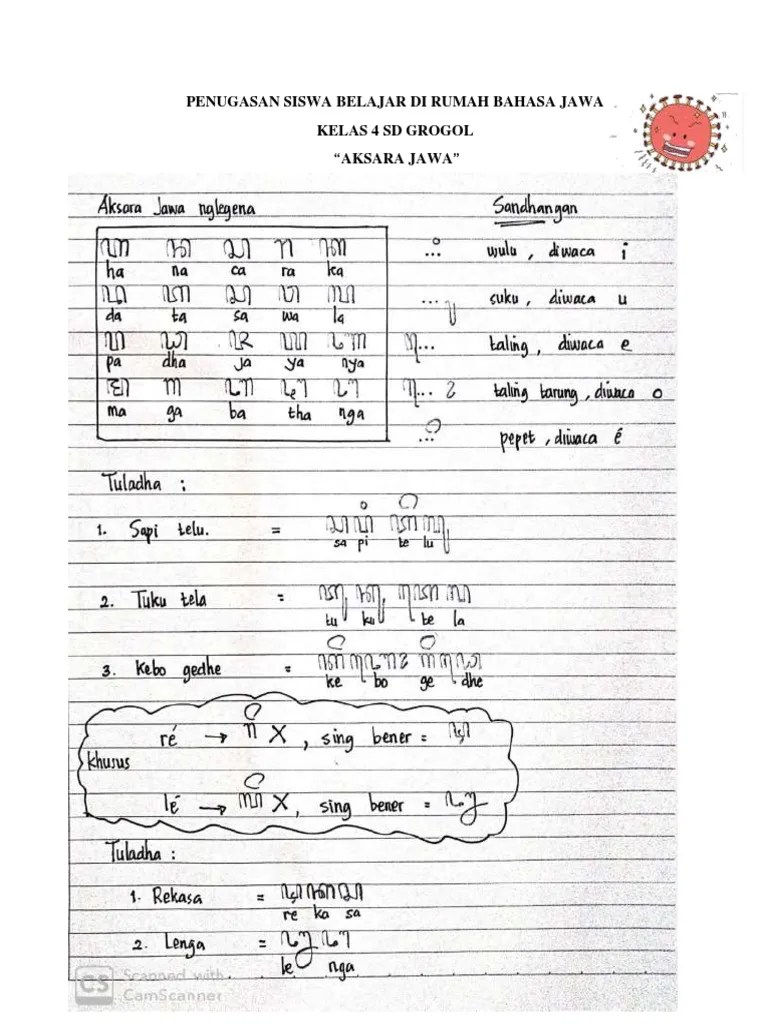 PENUGASAN SISWA BELAJAR DI RUMAH BAHASA JAWA
KELAS 4 SD GROGOL
“AKSARA JAWA”
Aksara Jawa nglegena
Sandhangan
ꦲ ꦤ ꦕ ꦫ ꦏ
ha na ca ra ka
wulu, diwaca i
ꦢ ꦠ ꦱ ꦮ ꦭ
da ta sa wa la
suku, diwaca u
ꦥ ꦝ ꦗ ꦪ ꦚ
pa dha ja ya nya
taling, diwaca e
ꦩ ꦒ ꦧ ꦛ ꦔ
ma ga ba tha nga
taling tarung, diwaca o
pepet, diwaca é
Tuladha :
1. Sapi telu. = ꦱꦥꦶ ꦠꦼꦭꦸ
sa pi te lu
2. Tuku tela = ꦠꦸꦏꦸ ꦠꦺꦭ
tu ku te la
3. Kebo gedhe = ꦏꦼꦧꦺꦴ ꦒꦼꦝꦺ
ke bo ge dhe
ré → ꦫꦼ X, sing bener = ꦉ
Khusus
lé → ꦭꦼ X, sing bener = ꦊ
Tuladha :
1. Rekasa = ꦉꦏꦱ
re ka sa
2. Lenga = ꦊꦔ
le nga
CS Scanned with
CamScanner